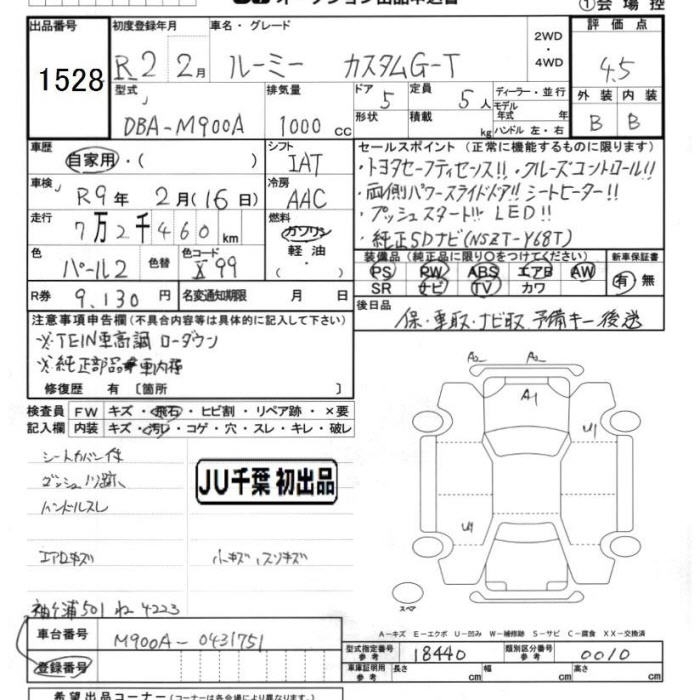 ①会場控
出品番号
1528
初度登録年月
R2 2月
車名・グレード
ルーミー カスタムG-T
2WD
・
4WD
評価点
4.5
型式
DBA-M900A
排気量
1000 cc
ドア 5
形状
定員 5人
積載 kg
ディーラー・並行
モデル年式 年
ハンドル 左・右
外装 内装
B B
車歴
自家用・( )
シフト
IAT
セールスポイント（正常に機能するものに限ります）
・トヨタセーフティセンス!!・クルーズコントロール!!
・両側パワースライドドア!! シートヒーター!!
・プッシュスタート!! LED!!
・純正SDナビ(NSZT-Y68T)
車検
R9年 2月(16日)
冷房
AAC
走行
7万2千460km
燃料
ガソリン
軽油
・
色
パール2
色替
色コード
X99
装備品（純正品に限り○をつけてください）
PS PW ABS エアB AW
SR ナビ TV カワ
新車保証書
有・無
R券
9,130円
名変通知期限 月 日
後日品
保・車取・ナビ取 予備キー後送
注意事項申告欄（不具合内容等は具体的に記入して下さい）
※TEIN車高調 ローダウン
※純正部品車内積
修復歴 有〔箇所 〕
検査員記入欄
FW キズ・飛石・ヒビ割・リペア跡・×要
内装 キズ・汚レ・コゲ・穴・スレ・キレ・破レ
シートカバー付
ハンドルスレ
エアロキズ
JU千葉 初出品
A2 A2
A1
U1
U1
スペア
袖ヶ浦501 ね 4223
車台番号
M900A-0431751
登録番号
A－キズ E－エクボ U－凹み W－補修跡 S－サビ C－腐食 XX－交換済
型式指定番号
参考
18440
類別区分番号
参考
0010
車庫証明用
参考
長さ 幅 高さ
希望出品コーナー（コーナーは各会場により異なります